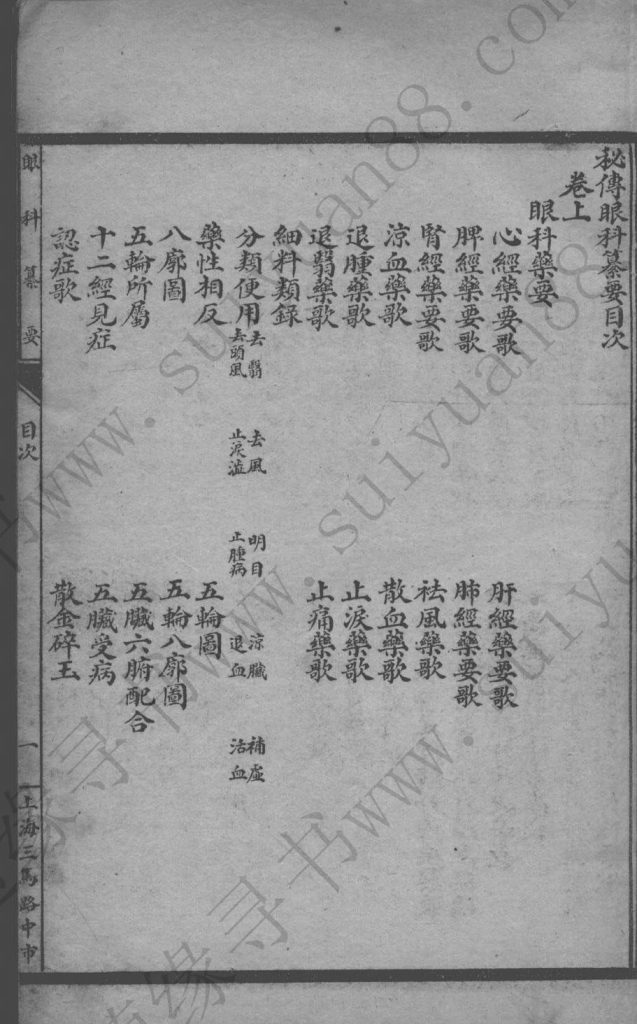 秘傳眼科纂要目次
卷上
眼科藥要
心經藥要歌　肝經藥要歌
脾經藥要歌　肺經藥要歌
腎經藥要歌　祛風藥歌
涼血藥歌　散血藥歌
退腫藥歌　止淚藥歌
退翳藥歌　止痛藥歌
細料類錄
分類便用　去翳　去風　明目　涼臟　補虛
去頭風　止淚澁　止腫病　退血　活血
藥性相反　五輪圖
八廓圖　五輪八廓圖
五輪所屬　五臟六腑配合
十二經見症　五臟受病
認症歌　散金碎玉
眼科纂要　目次　一　上海三馬路中市
www.suiyuan88.com
随缘寻书www.suiyuan88.com
缘寻书www.suiyu
缘寻书